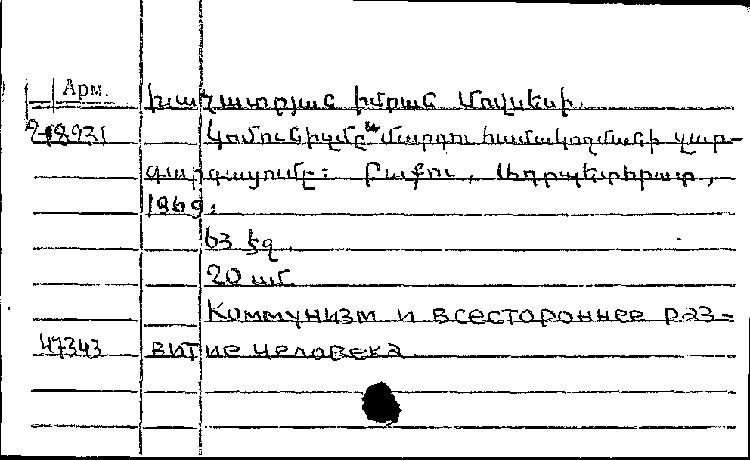 Арм.
Խաչատրյան Իմրան Մովսեսի
218931 Կոմունիզմը և մարդու համակողմանի զար-
գարգացումը: Բաքու, Ադրպետհրատ,
1969.
63 էջ.
20 սմ.
Коммунизм и всестороннее раз-
47343 витие человека